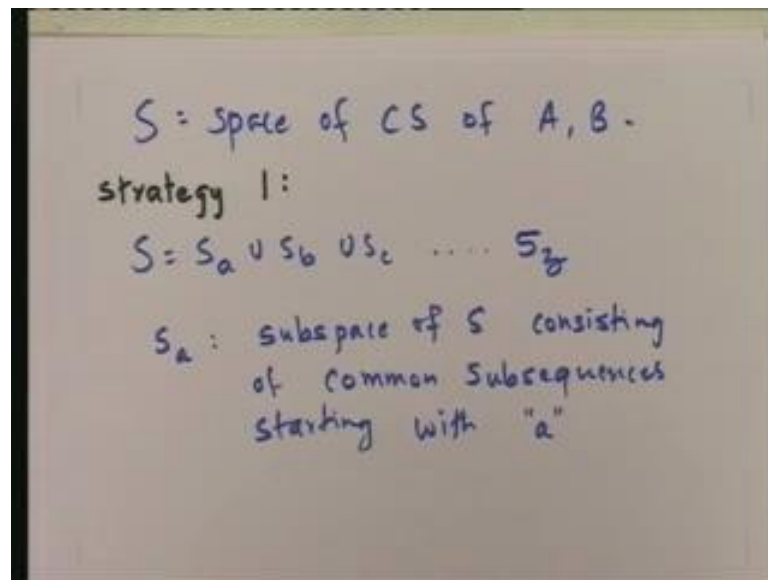 S = space of CS of A, B.
strategy 1:
S = Sa ∪ Sb ∪ Sc .... Sz
Sa : subspace of S consisting
of common subsequences
starting with "a"